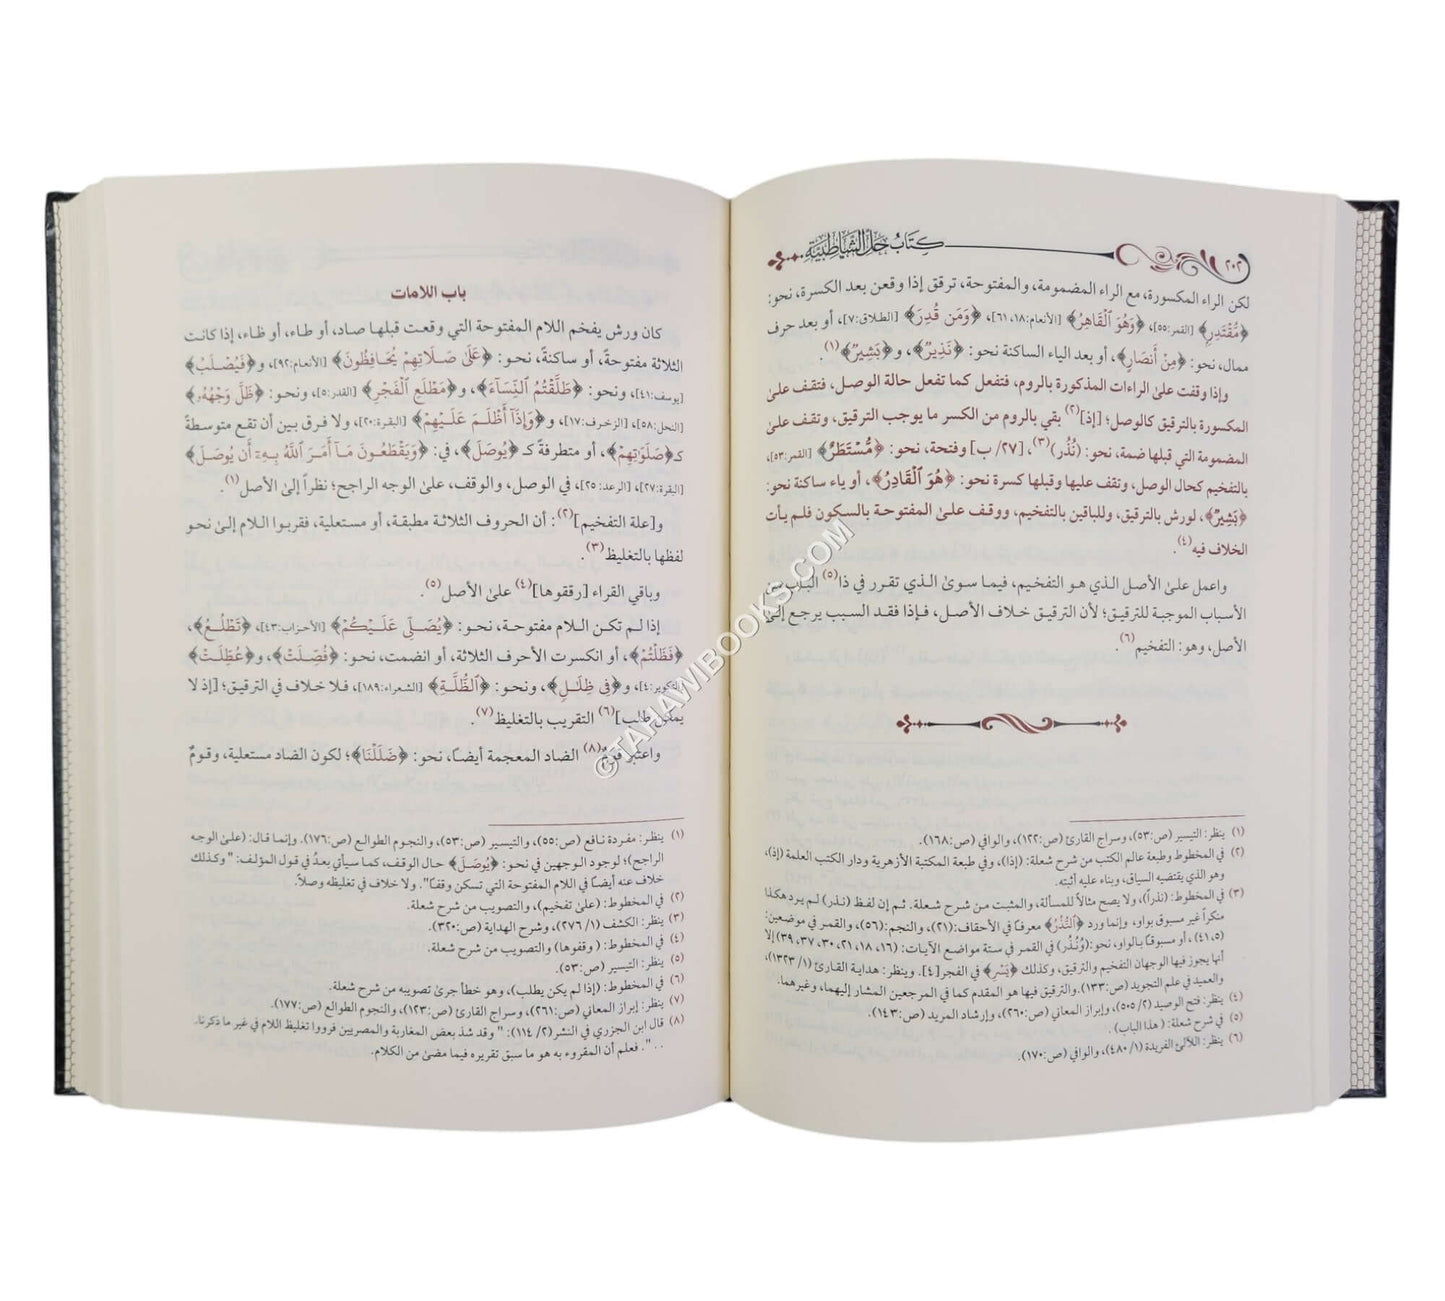 ٢٠٢
كتاب حل الشاطبية
لكن الراء المكسورة، مع الراء المضمومة، والمفتوحة، ترقق إذا وقعن بعد الكسرة، نحو:
﴿مُّقْتَدِرٍ﴾ [القمر:٥٥]، ﴿وَهُوَ ٱلْقَاهِرُ﴾ [الأنعام:١٨، ٦١]، ﴿وَمَن قُدِرَ﴾ [الطلاق:٧]، أو بعد حرف
ممال، نحو: ﴿مِنْ أَنصَارٍ﴾، أو بعد الياء الساكنة نحو: ﴿نَذِيرٌ﴾، و﴿بَشِيرٌ﴾(١).
وإذا وقفت على الراءات المذكورة بالروم، فتفعل كما تفعل حالة الوصل، فتقف على
المكسورة بالترقيق كالوصل؛ [إذ](٢) بقي بالروم من الكسر ما يوجب الترقيق، وتقف على
المضمومة التي قبلها ضمة، نحو: (نُذُر)(٣)، [٢٧/ ب] وفتحة، نحو: ﴿مُّسْتَطَرٌ﴾ [القمر:٥٣]،
بالتفخيم كحال الوصل، وتقف عليها وقبلها كسرة نحو: ﴿هُوَ ٱلْقَادِرُ﴾، أو ياء ساكنة نحو:
﴿بَشِيرٌ﴾، لورش بالترقيق، وللباقين بالتفخيم، ووقف على المفتوحة بالسكون فلم يأت
الخلاف فيه(٤).
واعمل على الأصل الذي هو التفخيم، فيما سوى الذي تقرر في ذا(٥) الباب من
الأسباب الموجبة للترقيق؛ لأن الترقيق خلاف الأصل، فإذا فقد السبب يرجع إلى
الأصل، وهو: التفخيم(٦).
(١) ينظر: التيسير (ص:٥٣)، وسراج القارئ (ص:١٢٢)، والوافي (ص:١٦٨).
(٢) في المخطوط وطبعة عالم الكتب من شرح شعلة: (إذا)، وفي طبعة المكتبة الأزهرية ودار الكتب العلمة (إذ)،
وهو الذي يقتضيه السياق، وبناء عليه أثبته.
(٣) في المخطوط: (نذراً)، ولا يصح مثالاً للمسألة، والمثبت من شرح شعلة. ثم إن لفظ (نذر) لم يرد هكذا
منكراً غير مسبوق بواو، وإنما ورد ﴿ٱلنُّذُرُ﴾ معرفاً في الأحقاف:(٢١)، والنجم:(٥٦)، والقمر في موضعين:
(٥، ٤١)، أو مسبوقاً بالواو، نحو:(وَنُذُرِ) في القمر في ستة مواضع الآيات: (١٦، ١٨، ٢١، ٣٠، ٣٧، ٣٩) إلا
أنها يجوز فيها الوجهان التفخيم والترقيق، وكذلك ﴿يَسْرِ﴾ في الفجر[٤]. وينظر: هداية القارئ (١/ ١٣٢٣)،
والعميد في علم التجويد (ص:١٣٣). والترقيق فيها هو المقدم كما في المرجعين المشار إليهما، وغيرهما.
(٤) ينظر: فتح الوصيد (٢/ ٥٠٥)، وإبراز المعاني (ص:٢٦٠)، وإرشاد المريد (ص:١٤٣).
(٥) في شرح شعلة: ( هذا الباب) .
(٦) ينظر: اللآلئ الفريدة (١/ ٤٨٠)، والوافي (ص:١٧٠).
باب اللامات
كان ورش يفخم اللام المفتوحة التي وقعت قبلها صاد، أو طاء، أو ظاء، إذا كانت
الثلاثة مفتوحةً، أو ساكنةً، نحو: ﴿عَلَىٰ صَلَاتِهِمْ يُحَافِظُونَ﴾ [الأنعام:٩٢]، و﴿فَيُصْلَبُ﴾
[يوسف:٤١]، ونحو: ﴿طَلَّقْتُمُ ٱلنِّسَآءَ﴾، و﴿مَطْلَعِ ٱلْفَجْرِ﴾ [القدر:٥]، ونحو: ﴿ظَلَّ وَجْهُهُۥ﴾
[النحل:٥٨]، [الزخرف:١٧]، و﴿وَإِذَآ أَظْلَمَ عَلَيْهِمْ﴾ [البقرة:٢٠]، ولا فرق بين أن تقع متوسطةً
كـ﴿صَلَوَٰتِهِمْ﴾، أو متطرفةً كـ﴿يُوصَلَ﴾، في: ﴿وَيَقْطَعُونَ مَآ أَمَرَ ٱللَّهُ بِهِۦٓ أَن يُوصَلَ﴾
[البقرة:٢٧]، [الرعد:٢٥]، في الوصل، والوقف، على الوجه الراجح؛ نظراً إلى الأصل(١).
و[علة التفخيم](٢): أن الحروف الثلاثة مطبقة، أو مستعلية، فقربوا اللام إلى نحو
لفظها بالتغليظ(٣).
وباقي القراء [رققوها](٤) على الأصل(٥).
إذا لم تكن اللام مفتوحة، نحو: ﴿يُصَلِّى عَلَيْكُمْ﴾ [الأحزاب:٤٣]، ﴿تَطْلُعُ﴾،
﴿فَظَلْتُمْ﴾، أو انكسرت الأحرف الثلاثة، أو انضمت، نحو: ﴿فُصِّلَتْ﴾، و﴿عُطِّلَتْ﴾
[التكوير:٤]، و﴿فِى ظِلَٰلٍ﴾، ونحو: ﴿ٱلظُّلَّةِ﴾ [الشعراء:١٨٩]، فلا خلاف في الترقيق؛ [إذ لا
يمكن طلب](٦) التقريب بالتغليظ(٧).
واعتبر قومٌ(٨) الضاد المعجمة أيضاً، نحو: ﴿ضَلَلْنَا﴾؛ لكون الضاد مستعلية، وقومٌ
(١) ينظر: مفردة نافع (ص:٥٥)، والتيسير (ص:٥٣)، والنجوم الطوالع (ص:١٧٦). وإنما قال: (على الوجه
الراجح)؛ لوجود الوجهين في نحو: ﴿يُوصَلَ﴾ حال الوقف، كما سيأتي بعدُ في قول المؤلف: "وكذلك
خلاف عنه أيضاً في اللام المفتوحة التي تسكن وقفاً". ولا خلاف في تغليظه وصلاً.
(٢) في المخطوط: (على تفخيم)، والتصويب من شرح شعلة.
(٣) ينظر: الكشف (١/ ٢٧٦)، وشرح الهداية (ص:٣٢٠).
(٤) في المخطوط: ( وقفوها) والتصويب من شرح شعلة.
(٥) ينظر: التيسير (ص:٥٣).
(٦) في المخطوط: (إذا لم يكن يطلب)، وهو خطأ جرى تصويبه من شرح شعلة.
(٧) ينظر: إبراز المعاني (ص:٢٦١)، وسراج القارئ (ص:١٢٣)، والنجوم الطوالع (ص:١٧٧).
(٨) قال ابن الجزري في النشر (٢/ ١١٤): " وقد شذ بعض المغاربة والمصريين فرووا تغليظ اللام في غير ما ذكرنا.
. . ". فعلم أن المقروء به هو ما سبق تقريره فيما مضى من الكلام.
©TAHAWIBOOKS.COM